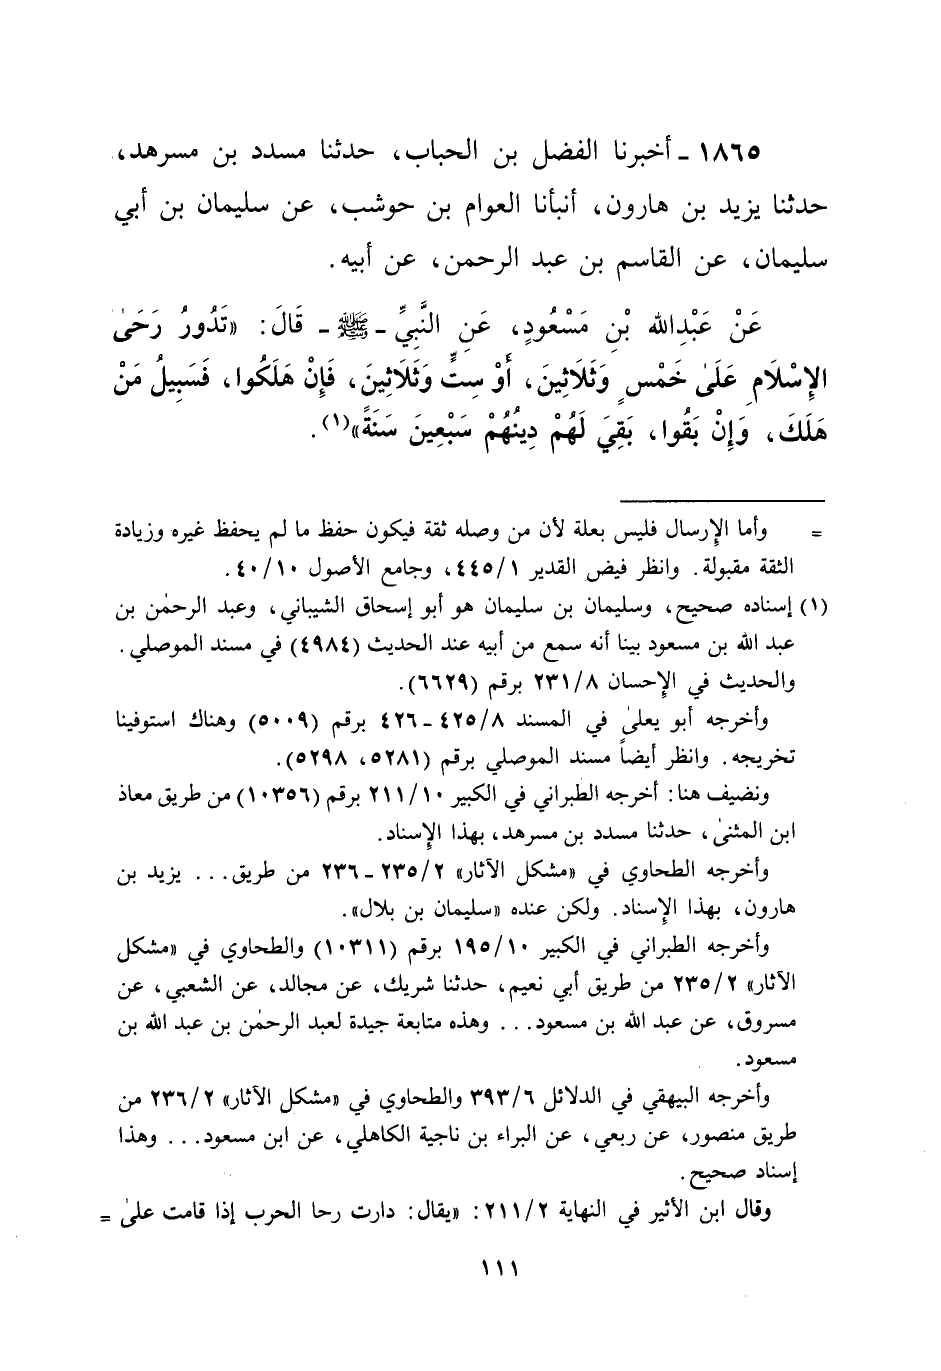 ١٨٦٥ ـ أخبرنا الفضل بن الحباب، حدثنا مسدد بن مسرهد،
حدثنا يزيد بن هارون، أنبأنا العوام بن حوشب، عن سليمان بن أبي
سليمان، عن القاسم بن عبد الرحمن، عن أبيه.
عَنْ عَبْدِالله بْنِ مَسْعُودٍ، عَنِ النَّبِيِّ ـ ﷺ ـ قَالَ: «تَدُورُ رَحَىٰ
الإِسْلَامِ عَلَىٰ خَمْسٍ وَثَلَاثِينَ، أَوْ سِتٍّ وَثَلَاثِينَ، فَإِنْ هَلَكُوا، فَسَبِيلُ مَنْ
هَلَكَ، وَإِنْ بَقُوا، بَقِيَ لَهُمْ دِينُهُمْ سَبْعِينَ سَنَةً»(١).
= وأما الإرسال فليس بعلة لأن من وصله ثقة فيكون حفظ ما لم يحفظ غيره وزيادة
الثقة مقبولة. وانظر فيض القدير ٤٤٥/١، وجامع الأصول ٤٠/١٠.
(١) إسناده صحيح، وسليمان بن سليمان هو أبو إسحاق الشيباني، وعبد الرحمٰن بن
عبد الله بن مسعود بينا أنه سمع من أبيه عند الحديث (٤٩٨٤) في مسند الموصلي.
والحديث في الإحسان ٢٣١/٨ برقم (٦٦٢٩).
وأخرجه أبو يعلىٰ في المسند ٤٢٥/٨ ـ ٤٢٦ برقم (٥٠٠٩) وهناك استوفينا
تخريجه. وانظر أيضاً مسند الموصلي برقم (٥٢٨١، ٥٢٩٨).
ونضيف هنا: أخرجه الطبراني في الكبير ٢١١/١٠ برقم (١٠٣٥٦) من طريق معاذ
ابن المثنىٰ، حدثنا مسدد بن مسرهد، بهذا الإسناد.
وأخرجه الطحاوي في «مشكل الآثار» ٢٣٥/٢ ـ ٢٣٦ من طريق... يزيد بن
هارون، بهذا الإسناد. ولكن عنده «سليمان بن بلال».
وأخرجه الطبراني في الكبير ١٩٥/١٠ برقم (١٠٣١١) والطحاوي في «مشكل
الآثار» ٢٣٥/٢ من طريق أبي نعيم، حدثنا شريك، عن مجالد، عن الشعبي، عن
مسروق، عن عبد الله بن مسعود... وهذه متابعة جيدة لعبد الرحمٰن بن عبد الله بن
مسعود.
وأخرجه البيهقي في الدلائل ٣٩٣/٦ والطحاوي في «مشكل الآثار» ٢٣٦/٢ من
طريق منصور، عن ربعي، عن البراء بن ناجية الكاهلي، عن ابن مسعود... وهذا
إسناد صحيح.
وقال ابن الأثير في النهاية ٢١١/٢: «يقال: دارت رحا الحرب إذا قامت علىٰ =
١١١